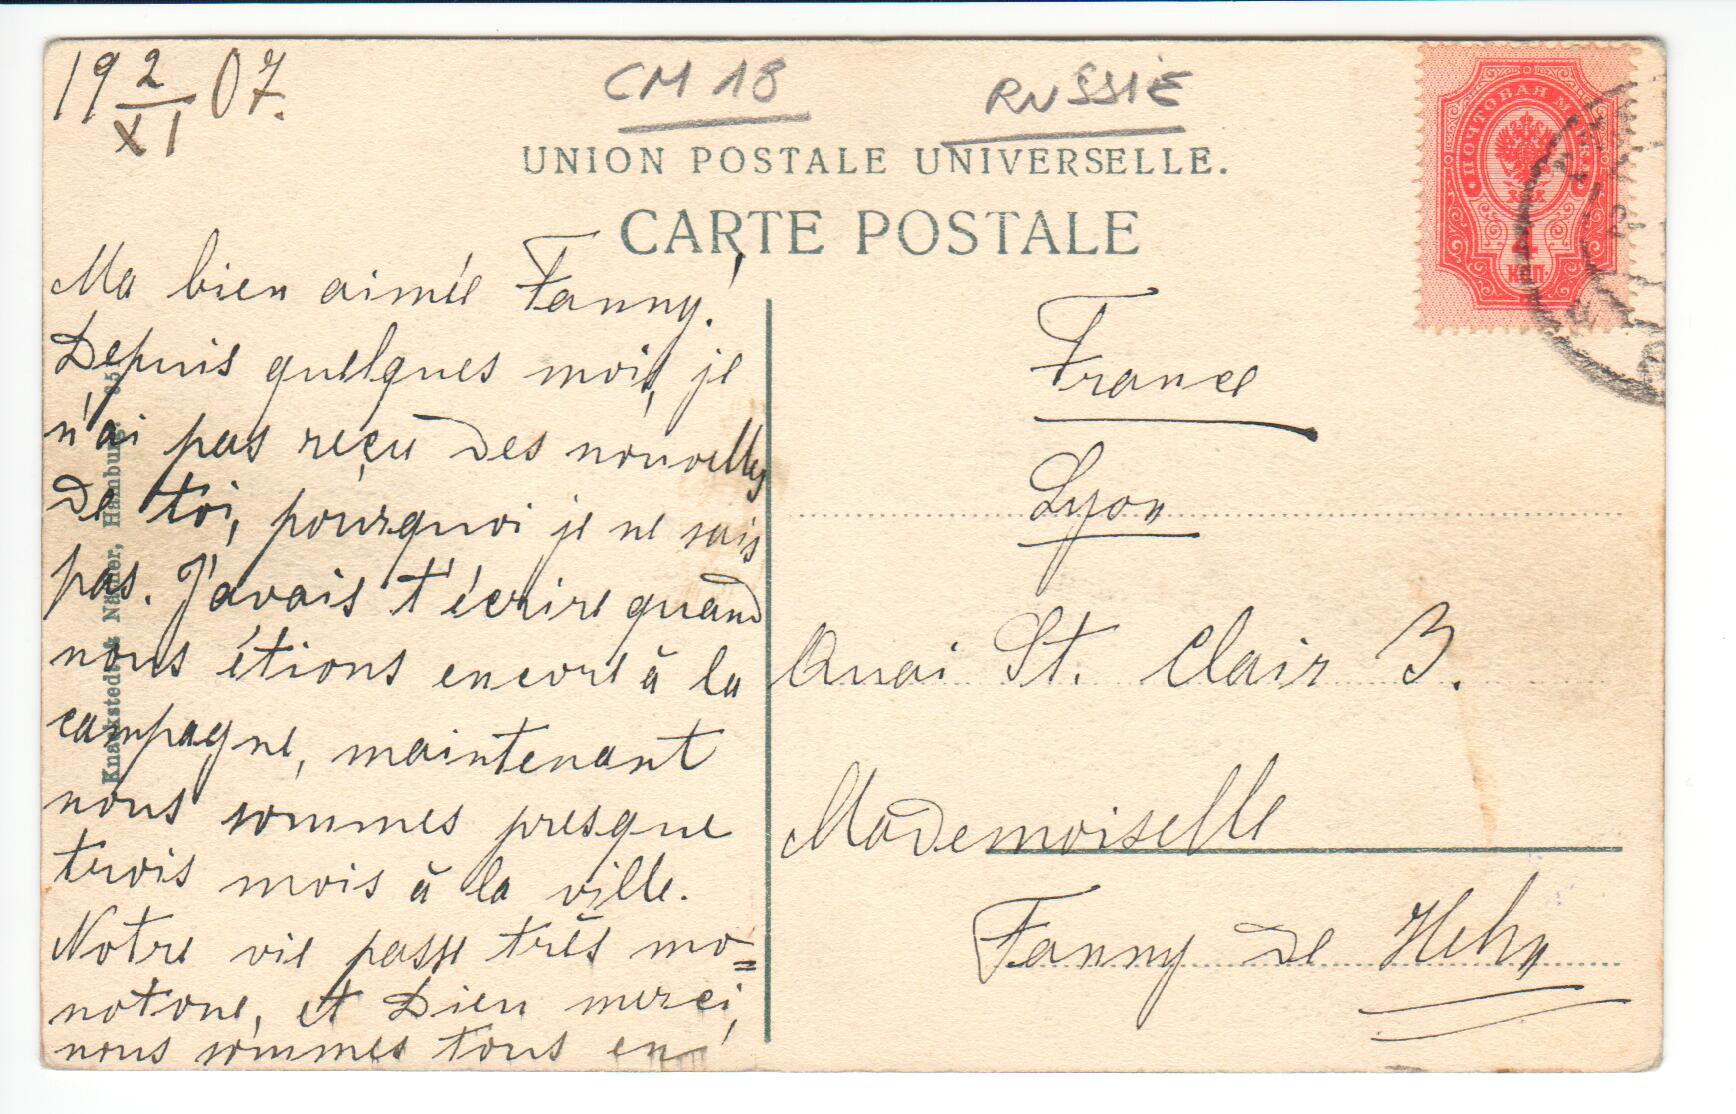 19 2/XI 07.
CM 18
RUSSIE
UNION POSTALE UNIVERSELLE.
CARTE POSTALE
ПОЧТОВАЯ МАРКА
КОП.
Ma bien aimée Fanny!
Depuis quelques mois, je
n'ai pas reçu des nouvelles
de toi, pourquoi je ne sais
pas. J'avais t'écrire quand
nous étions encore à la
campagne, maintenant
nous sommes presque
trois mois à la ville.
Notre vie passe très mo=
notone, et Dieu merci,
nous sommes tous en
Knackstedt & Näther, Hamburg.
France
Lyon
Quai St. Clair 3.
Mademoiselle
Fanny de Hehn